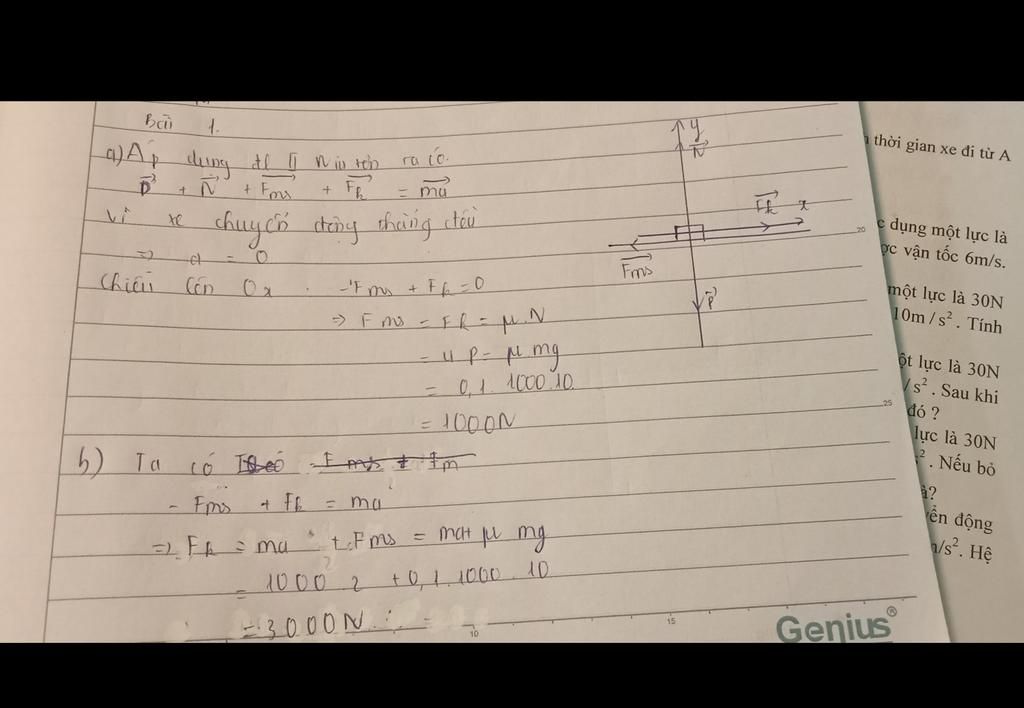 Bài 1.
a) Áp dụng đl II Niu tơn ta có.
P + N + Fms + Fk = ma
Vì xe chuyển động thẳng đều
=> a = 0
Chiếu lên Ox . -Fms + Fk = 0
=> Fms = Fk = μ.N
= μ P = μ mg
= 0,1. 1000.10
= 1000N
y
N
Fk x
Fms
P
b) Ta có
- Fms + Fk = ma
=> Fk = ma + Fms = ma + μ mg
= 1000 . 2 + 0,1.1000.10
= 3000N
20
25
10
15
Genius®
thời gian xe đi từ A
dụng một lực là
vận tốc 6m/s.
một lực là 30N
10m/s². Tính
lực là 30N
/s². Sau khi
đó ?
lực là 30N
. Nếu bỏ
động
/s². Hệ